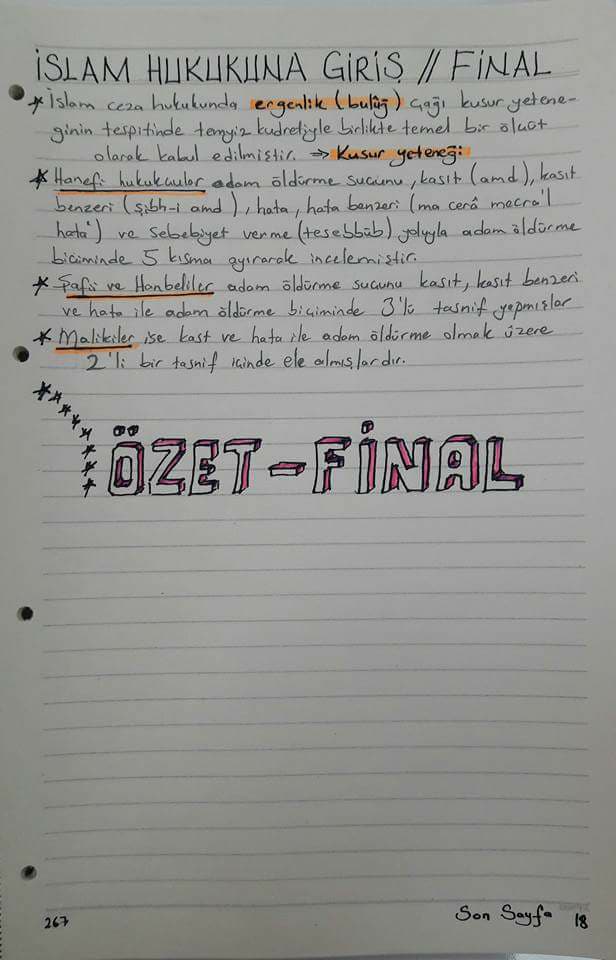 İSLAM HUKUKUNA GİRİŞ // FİNAL
* İslam ceza hukukunda ergenlik (bulûğ) çağı kusur yetene-
ğinin tespitinde temyiz kudretiyle birlikte temel bir ölçüt
olarak kabul edilmiştir. ⇒ Kusur yeteneği
* Hanefi hukukçular adam öldürme suçunu, kasıt (amd), kasıt
benzeri (şibh-i amd), hata, hata benzeri (ma cerâ mecra'l
hata') ve sebebiyet verme (tesebbüb) yoluyla adam öldürme
biçiminde 5 kısma ayırarak incelemiştir.
* Şafii ve Hanbeliler adam öldürme suçunu kasıt, kasıt benzeri
ve hata ile adam öldürme biçiminde 3'lü tasnif yapmışlar
* Malikiler ise kast ve hata ile adam öldürme olmak üzere
2'li bir tasnif içinde ele almışlardır.
ÖZET-FİNAL
267
Son Sayfa 18